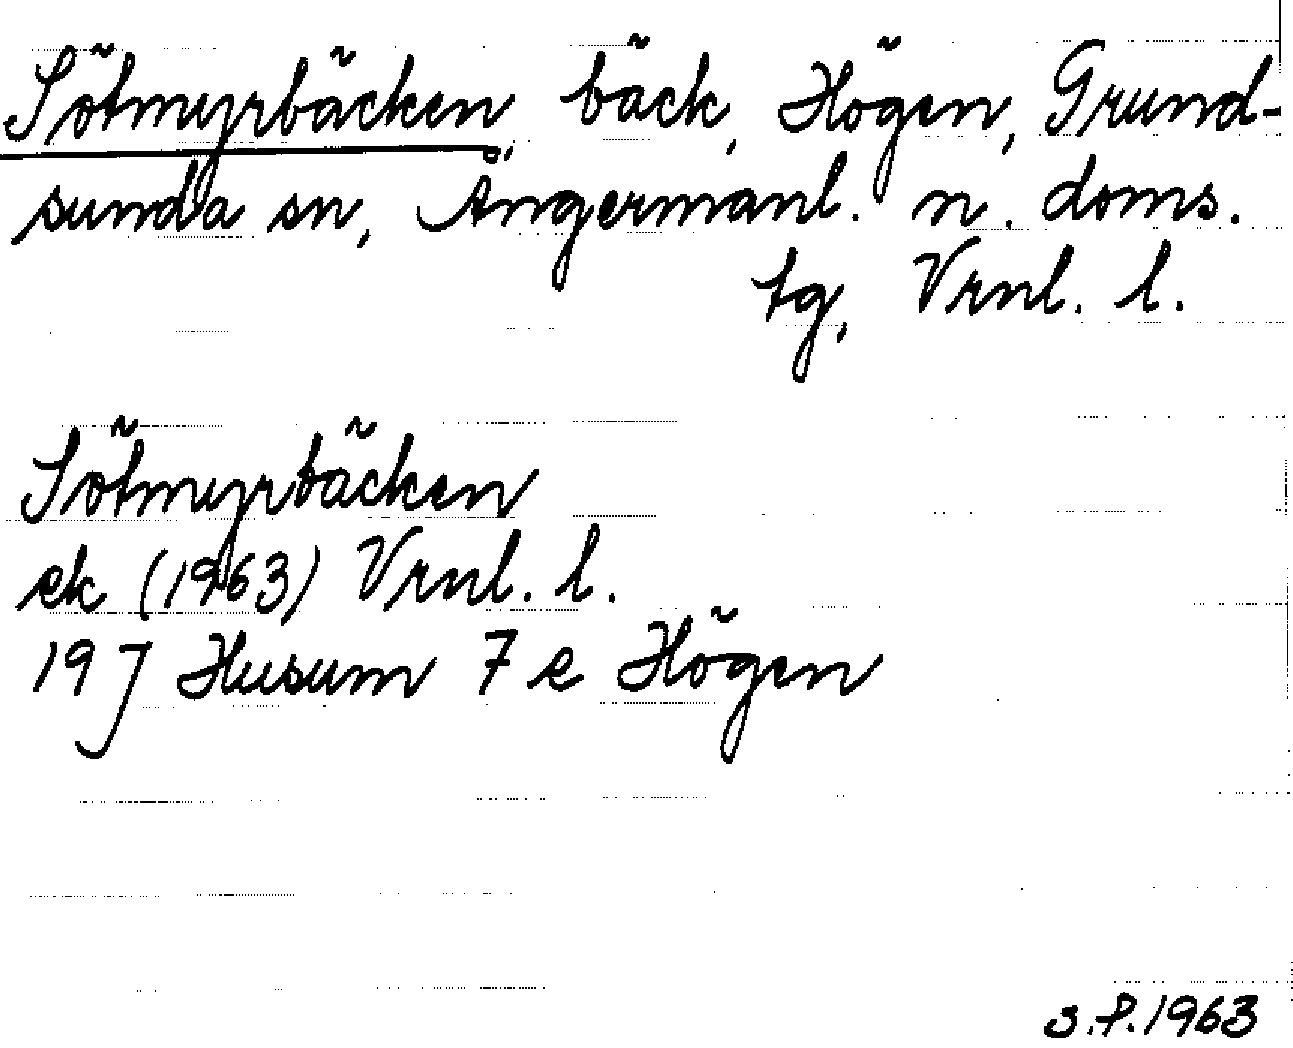 Sötmyrbäcken, bäck, Högen, Grund-
sunda sn, Ångermanl. n. doms.
tg, Vrnl. l.
Sötmyrbäcken
ek (1963) Vrnl. l.
19 J Husum 7 e Högen
S.P. 1963